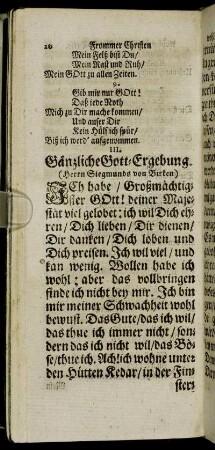 20 Frommer Christen
Mein Felß bist Du/
Mein Rast und Ruh/
Mein GOtt zu allen Zeiten.
9.
Gib mir nur GOtt!
Daß jede Noth
Mich zu Dir mache kommen/
Und ausser Dir
Kein Hülf ich spür/
Biß ich werd' aufgenommen.
III.
Gänzliche Gott-Ergebung.
(Herrn Siegmunds von Birken)
ICh habe / Großmächtig-
ster GOtt! deiner Maje-
stät viel gelobet: ich wil Dich eh-
ren/ Dich lieben/ Dir dienen/
Dir danken/ Dich loben und
Dich preisen. Ich wil viel/ und
kan wenig. Wollen habe ich
wohl: aber das vollbringen
finde ich nicht bey mir. Ich bin
mir meiner Schwachheit wohl
bewust. Das Gute/ das ich wil/
das thue ich immer nicht/ son-
dern das ich nicht wil/ das Bö-
se/ thue ich. Ach! ich wohne unter
den Hütten Kedar/ in der Fin-
stern